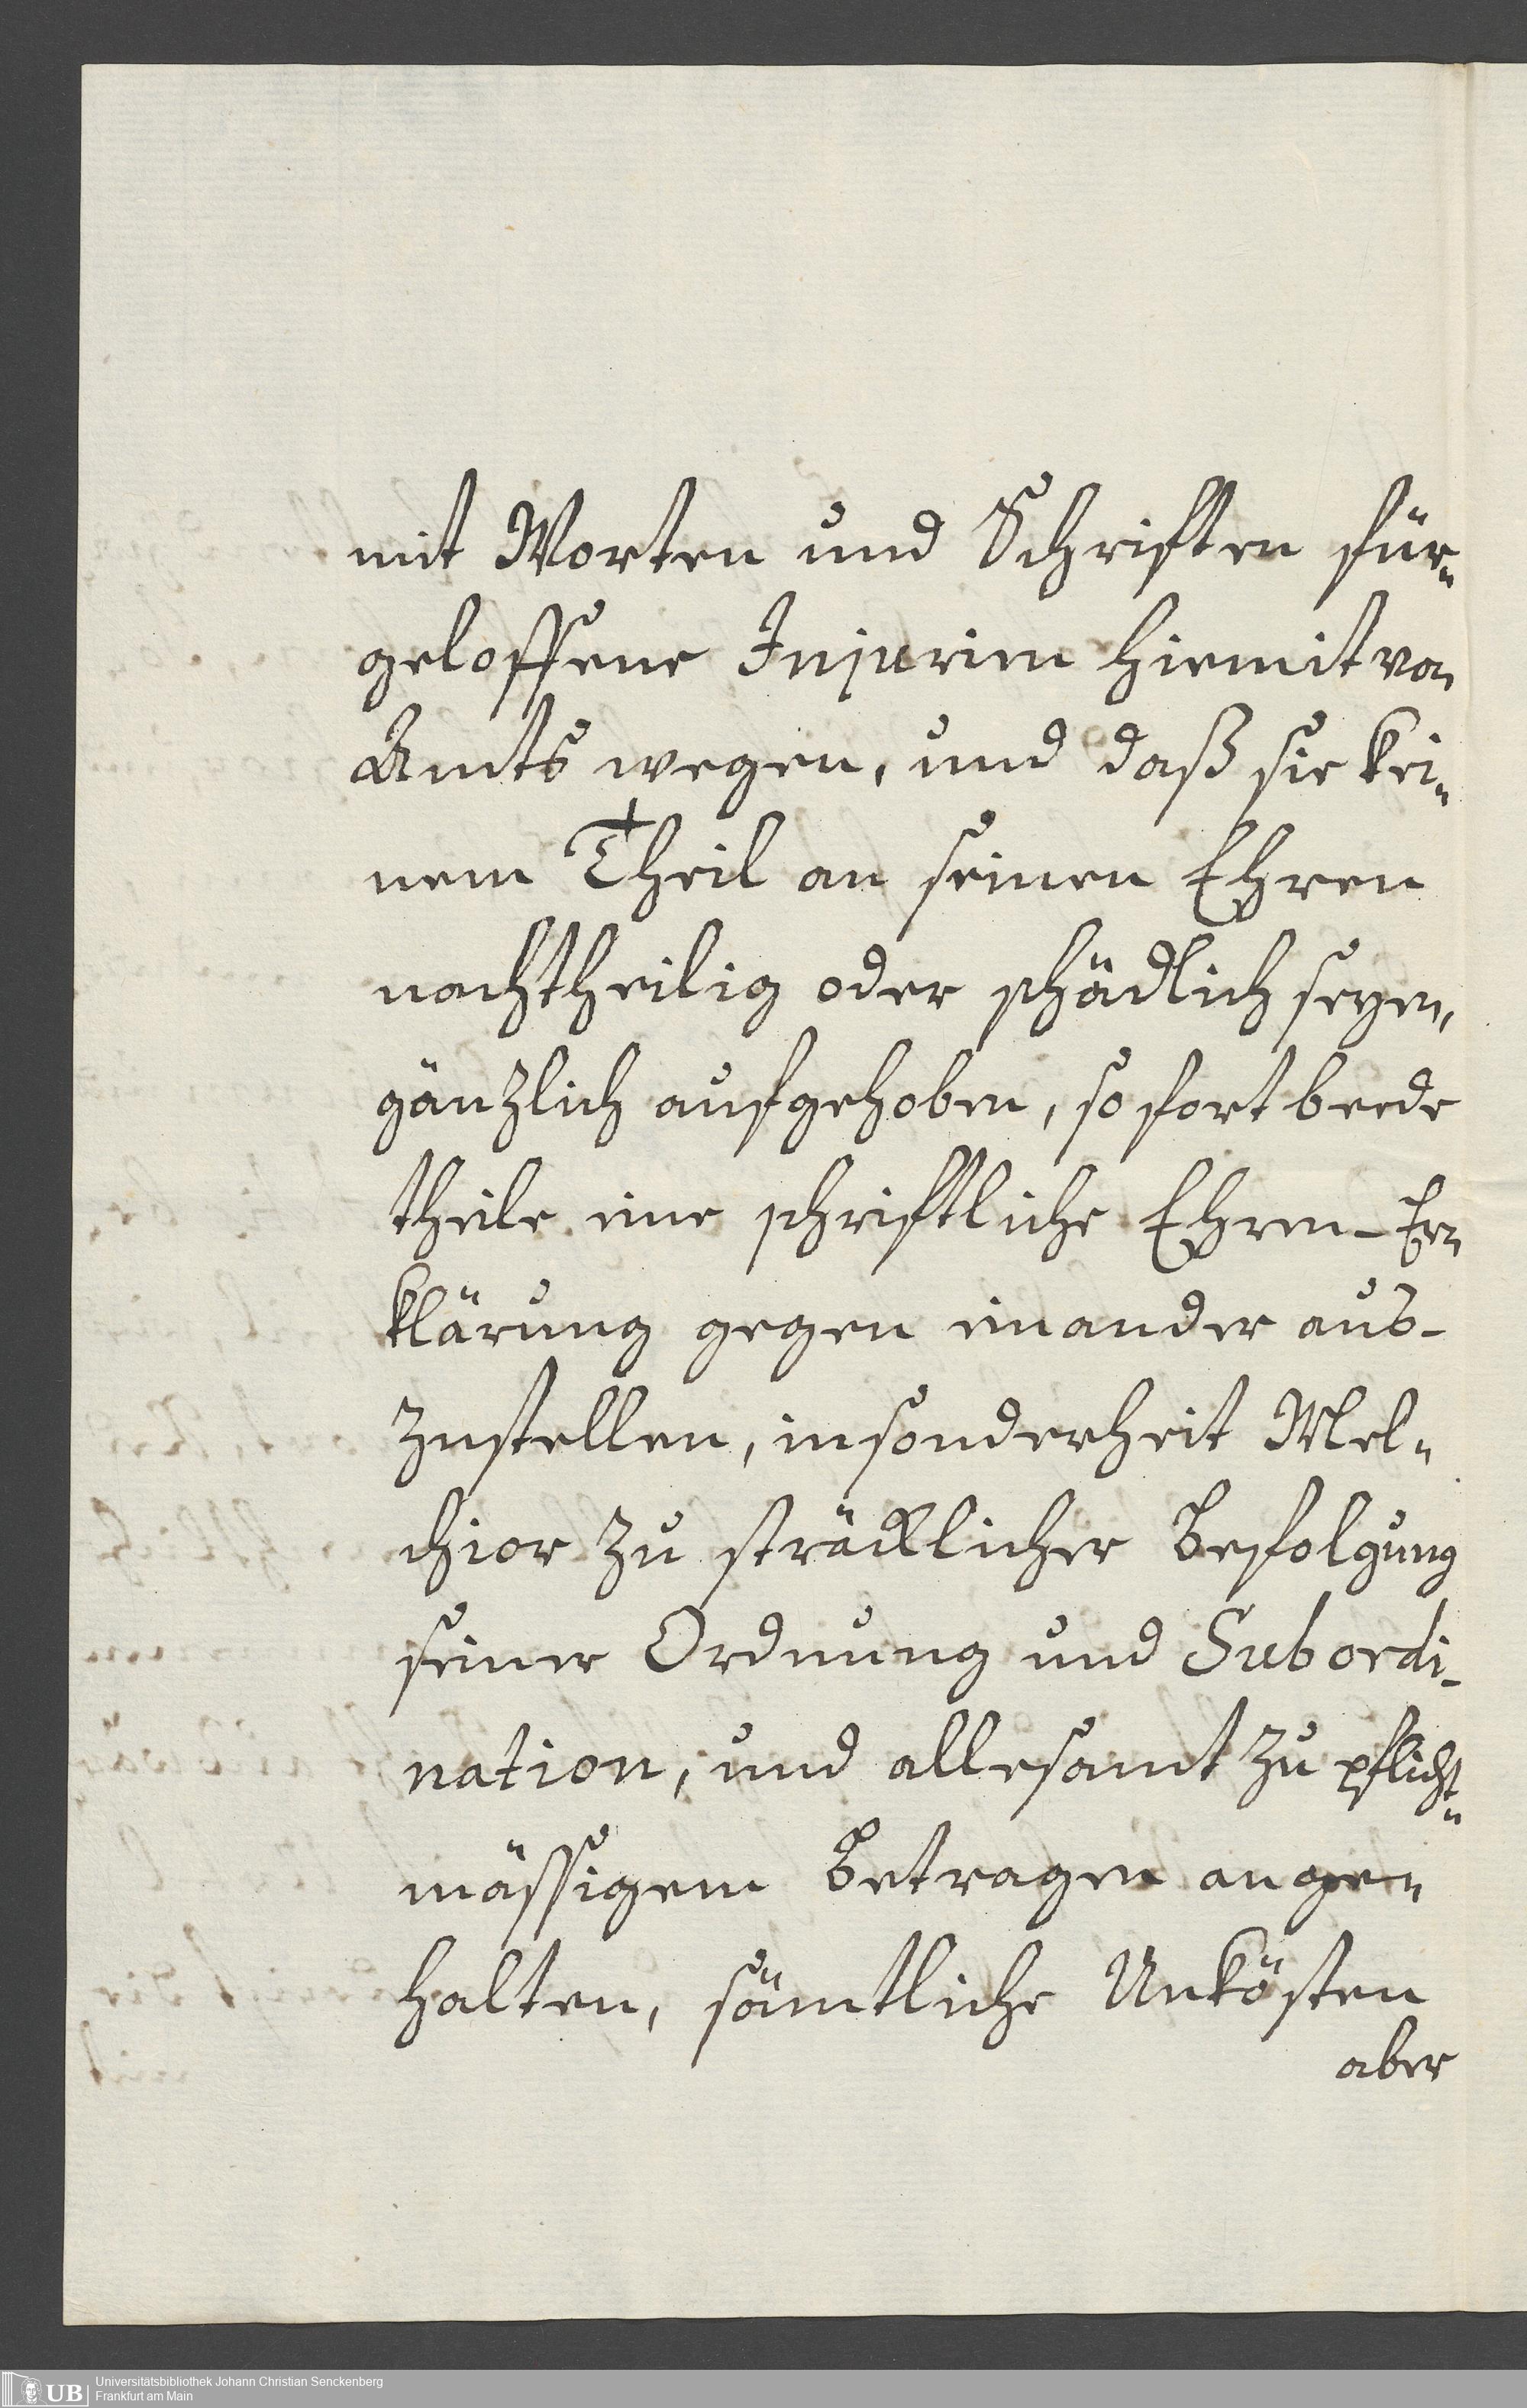 mit Worten und Schriften für-
geloffene Injurien hiemit von
Amts wegen, und daß sie kei-
nem Theil an seinen Ehren
nachtheilig oder schädlich seyen,
gänzlich aufgehoben, so fort beede
theile eine schriftliche Ehren-Er-
klärung gegen einander aus-
zustellen, insonderheit Mel-
chior zu sträcklicher Befolgung
seiner Ordnung und Subordi-
nation, und allesamt zu pflicht-
mässigem Betragen ange-
halten, sämtliche Unkösten
aber
UB
Universitätsbibliothek Johann Christian Senckenberg
Frankfurt am Main